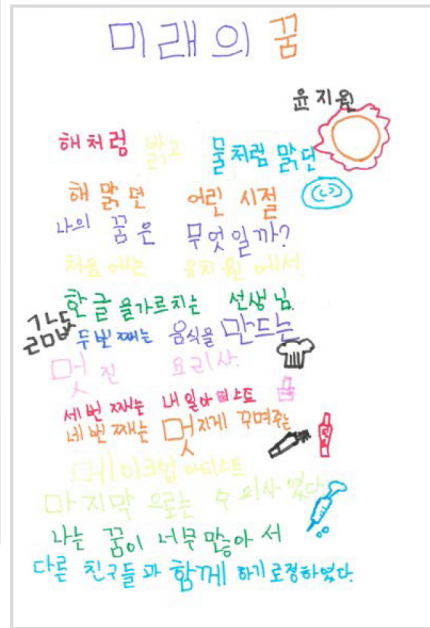 미래의 꿈
윤지원
해처럼 밝고 물처럼 맑던
해 맑던 어린 시절
나의 꿈은 무엇일까?
처음에는 유치원에서
한글을가르치는 선생님.
두번째는 음식을 만드는
멋진 요리사.
세번째는 내일아티스트
네번째는 멋지게 꾸며주는
메이크업 아티스트
마지막으로는 수의사였다.
나는 꿈이 너무 많아서
다른 친구들과 함께 하기로정하였다.